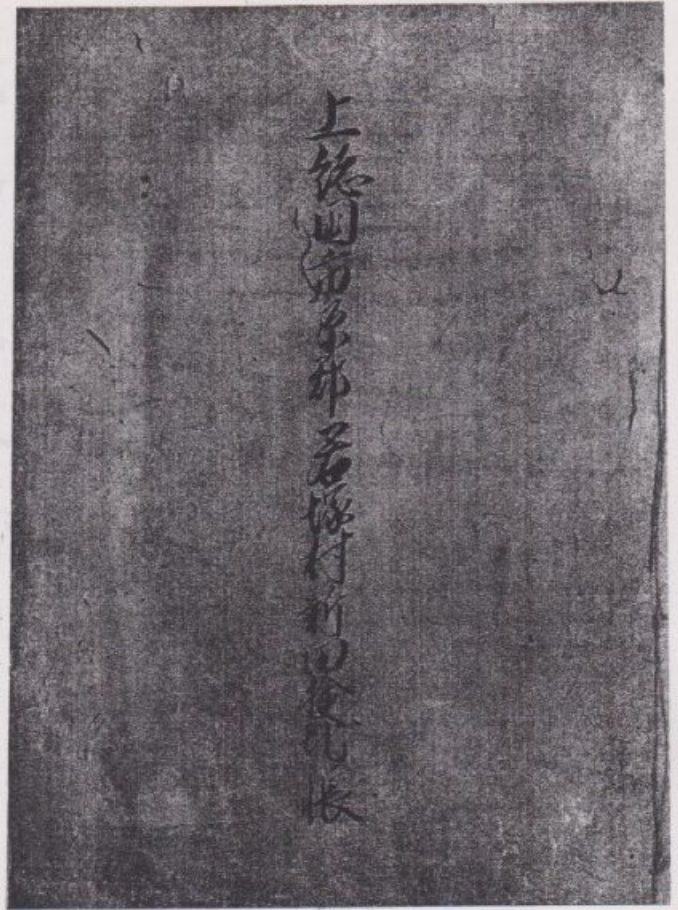 上総国市原郡君塚村新田検地帳